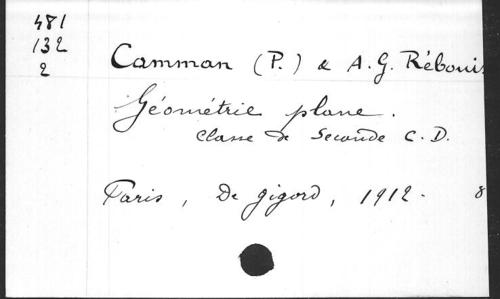 481
132
2
Camman (P.) & A. G. Rébouis
Géométrie plane.
Classe de Seconde C. D.
Paris, De Gigord, 1912. 8